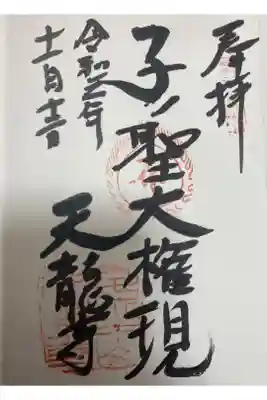 奉拝
子ノ聖大権現
天龍寺
令和 年
十一月